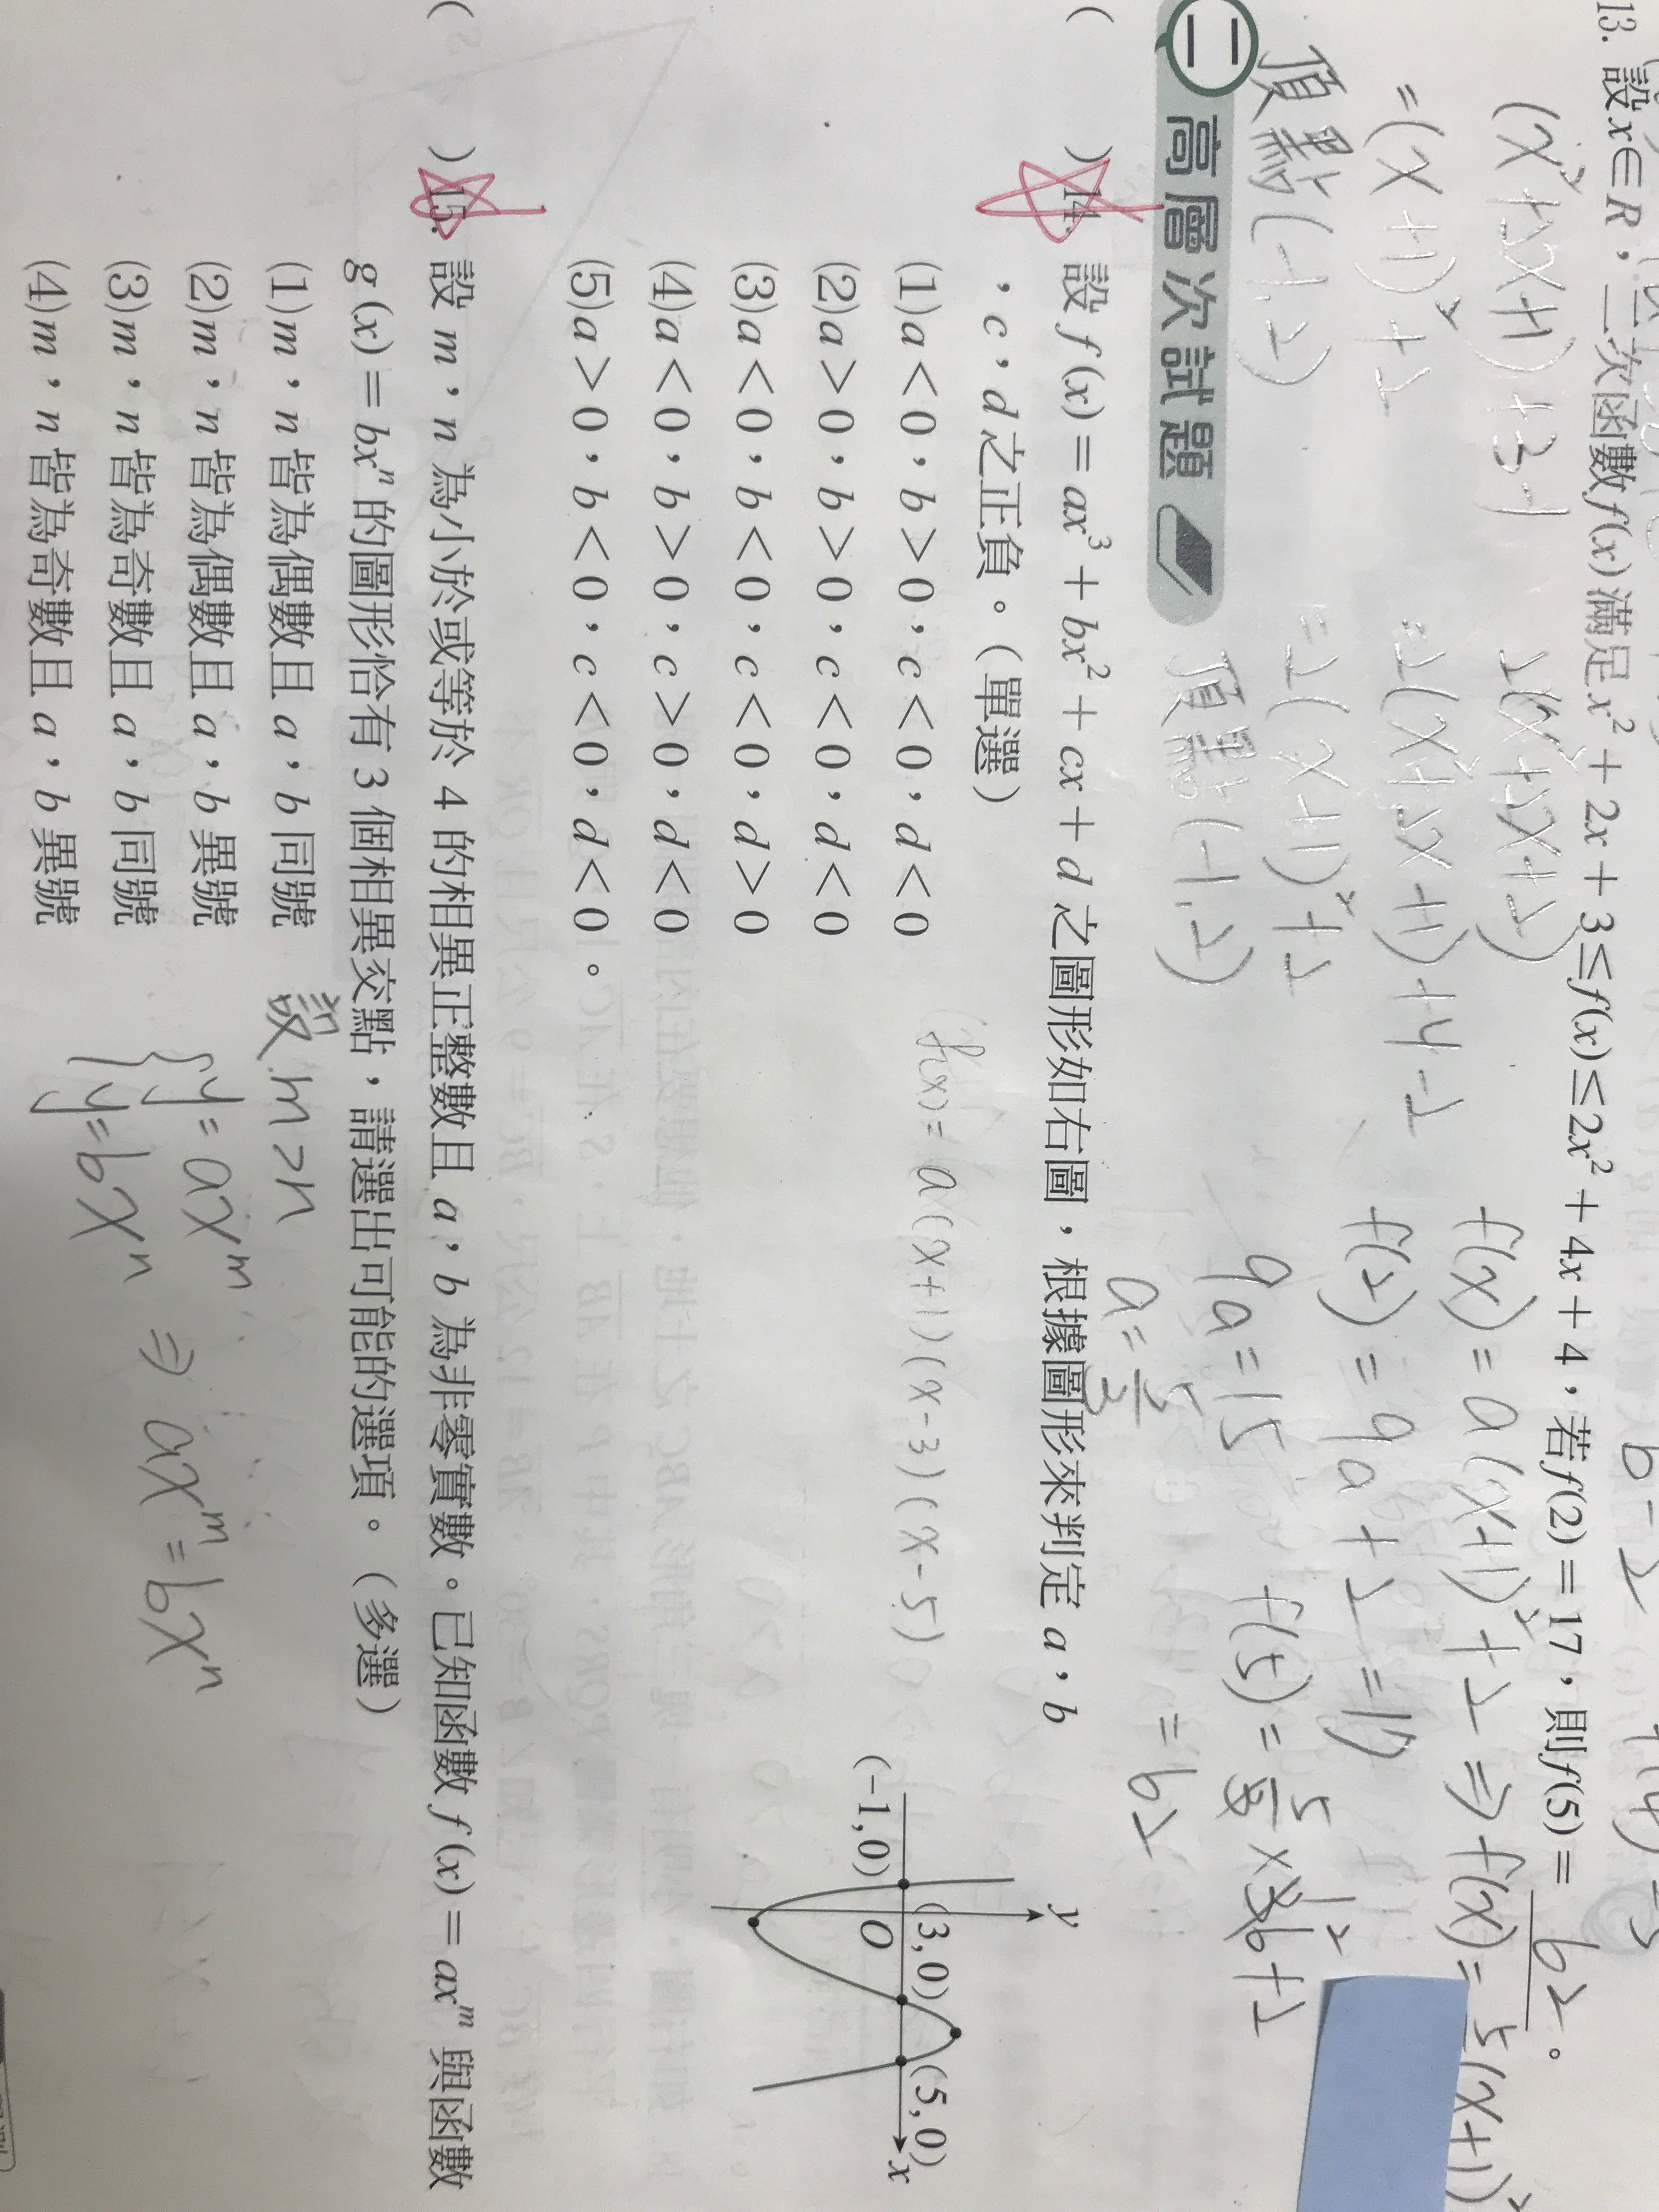 13. 設x∈R，二次函數f(x)滿足x²+2x+3≤f(x)≤2x²+4x+4，若f(2)=17，則f(5)= 62 。
(x²+2x+1)+3-1
=(x+1)²+2
頂點(-1,2)
2(x²+2x+2)
=2(x²+2x+1)+4-2
=2(x+1)²+2
頂點(-1,2)
f(x)=a(x+1)²+2⇒f(x)=
f(2)=9a+2=17
9a=15
a=5/3
=62
二 高層次試題
( )14. 設 f(x)=ax³+bx²+cx+d 之圖形如右圖，根據圖形來判定 a，b
，c，d 之正負。（單選）
(1)a<0，b>0，c<0，d<0
(2)a>0，b>0，c<0，d<0
(3)a<0，b<0，c<0，d>0
(4)a<0，b>0，c>0，d<0
(5)a>0，b<0，c<0，d<0。
f(x)=a(x+1)(x-3)(x-5)
y
(-1,0)
(3,0)
(5,0)
O
x
( )15. 設 m，n 為小於或等於 4 的相異正整數且 a，b 為非零實數。已知函數 f(x)=axᵐ 與函數
g(x)=bxⁿ 的圖形恰有 3 個相異交點，請選出可能的選項。（多選）
(1)m，n 皆為偶數且 a，b 同號
(2)m，n 皆為偶數且 a，b 異號
(3)m，n 皆為奇數且 a，b 同號
(4)m，n 皆為奇數且 a，b 異號
設 m>n
{y=axᵐ
y=bxⁿ ⇒ axᵐ=bxⁿ